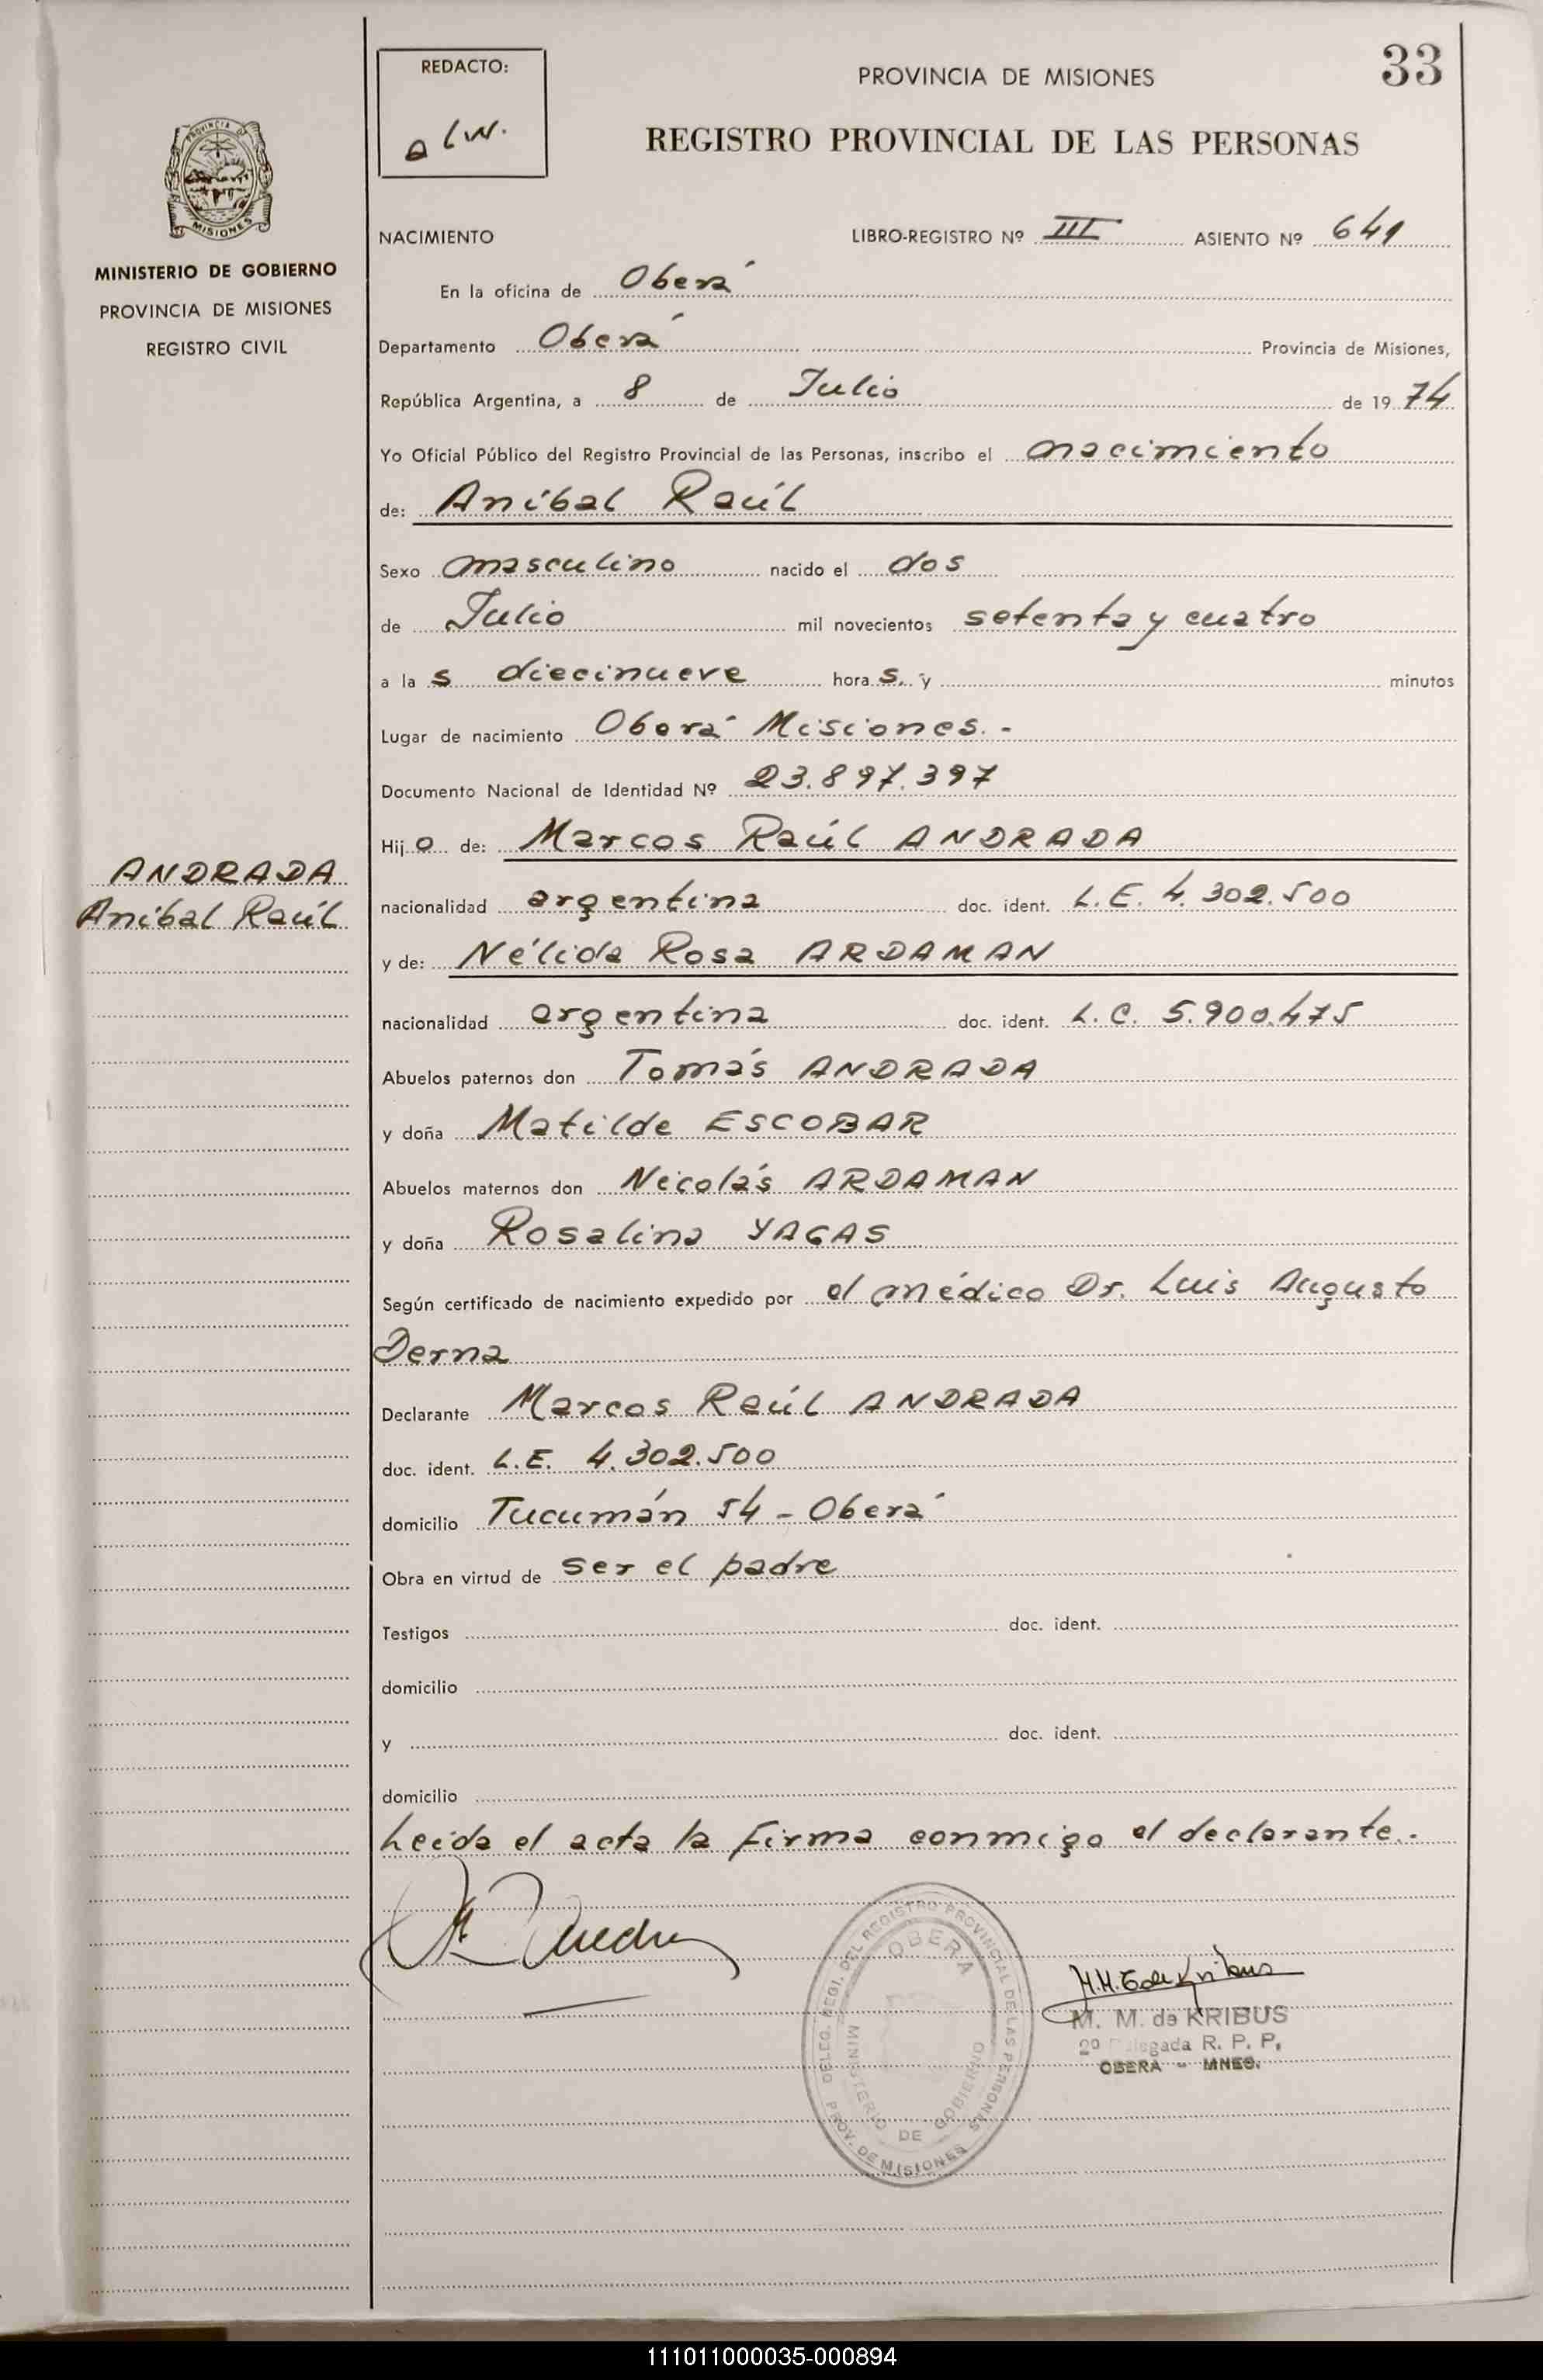 33
REDACTO:
alw.
PROVINCIA DE MISIONES
REGISTRO PROVINCIAL DE LAS PERSONAS
PROVINCIA DE
MISIONES
MINISTERIO DE GOBIERNO
PROVINCIA DE MISIONES
REGISTRO CIVIL
NACIMIENTO LIBRO-REGISTRO Nº III ASIENTO Nº 641
En la oficina de Oberá
Departamento Oberá Provincia de Misiones,
República Argentina, a 8 de Julio de 1974
Yo Oficial Público del Registro Provincial de las Personas, inscribo el nacimiento
de: Aníbal Raúl
Sexo masculino nacido el dos
de Julio mil novecientos setenta y cuatro
a la s diecinueve hora s. y minutos
Lugar de nacimiento Oberá Misiones.-
Documento Nacional de Identidad Nº 23.897.397
Hij o de: Marcos Raúl ANDRADA
ANDRADA
Aníbal Raúl
nacionalidad argentina doc. ident. L.E. 4.302.500
y de: Nélida Rosa ARDAMAN
nacionalidad argentina doc. ident. L.C. 5.900.475
Abuelos paternos don Tomás ANDRADA
y doña Matilde ESCOBAR
Abuelos maternos don Nicolás ARDAMAN
y doña Rosalina YAGAS
Según certificado de nacimiento expedido por el médico Dr. Luis Augusto
Derna
Declarante Marcos Raúl ANDRADA
doc. ident. L.E. 4.302.500
domicilio Tucumán 54 - Oberá
Obra en virtud de ser el padre
Testigos doc. ident.
domicilio
y doc. ident.
domicilio
Leida el acta la firma conmigo el declarante.
DELEG. REGI. DEL REGISTRO PROVINCIAL DE LAS PERSONAS
OBERA
MINISTERIO DE GOBIERNO
PROV. DE MISIONES
M. M. de KRIBUS
2º Delegada R. P. P,
OBERA - MNES.
111011000035-000894